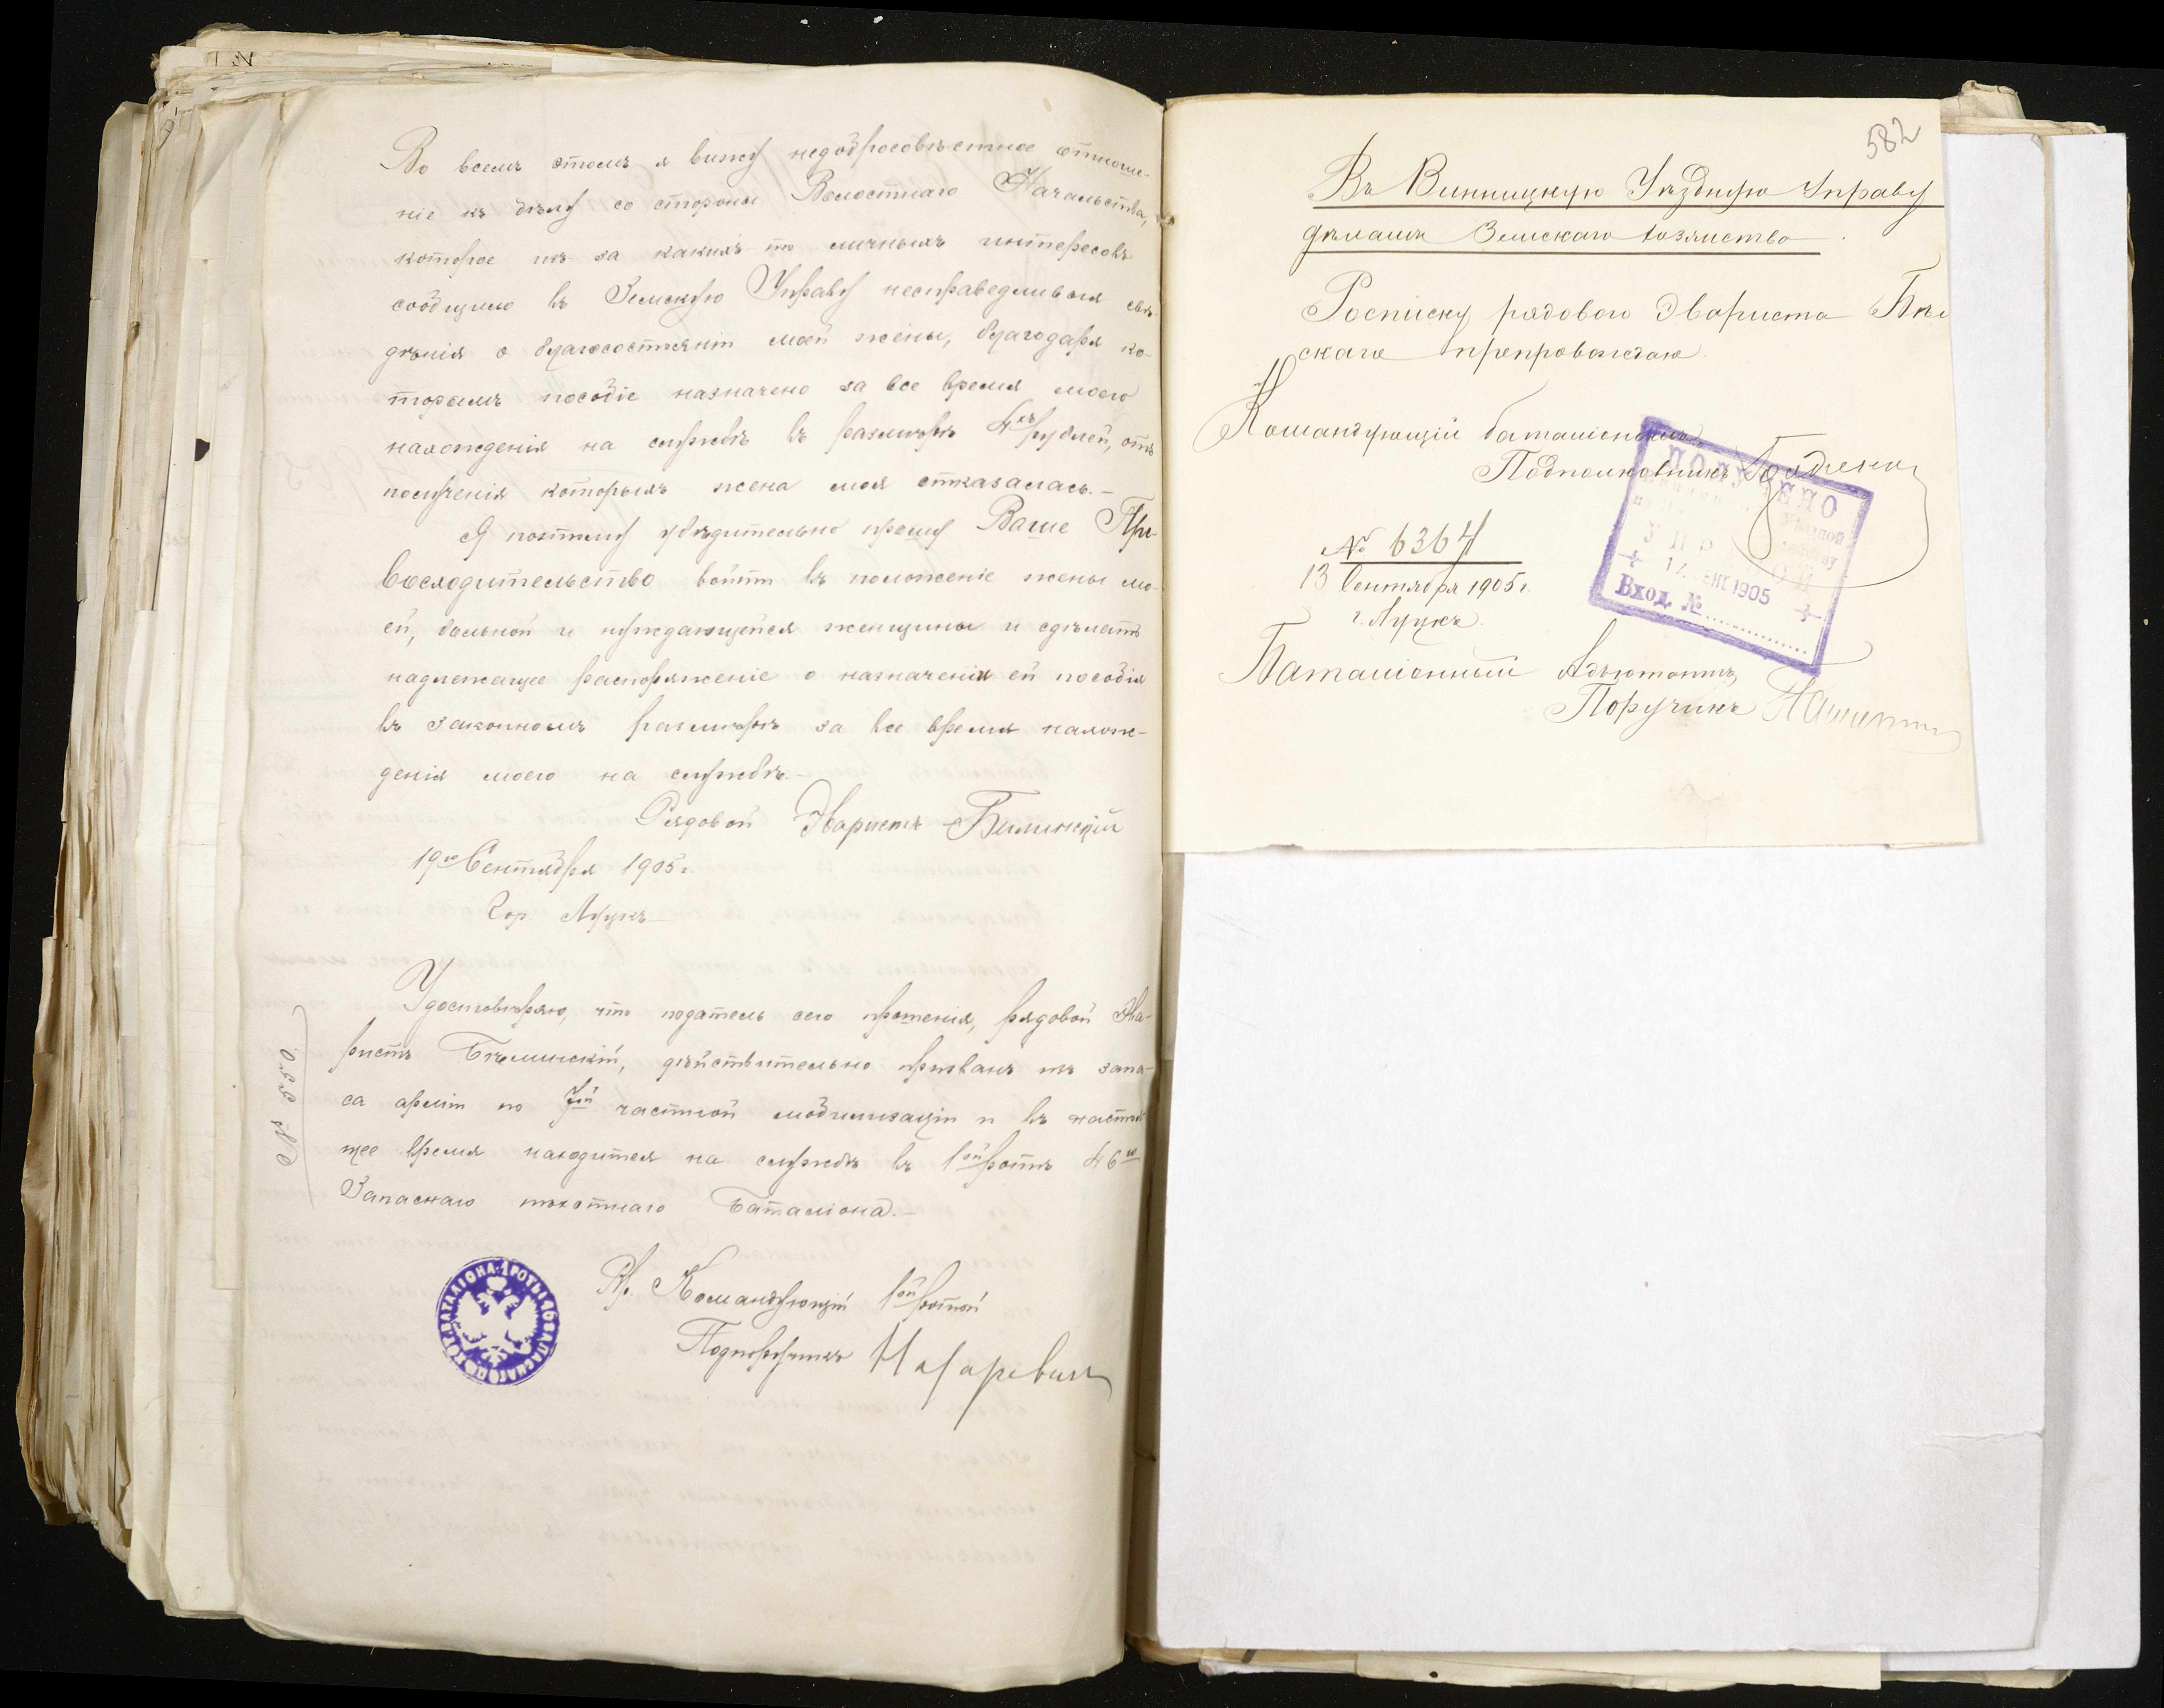 Во всемъ этомъ я вижу недобросовѣстное отноше-
ніе къ дѣлу со стороны Волостнаго Начальства,
которое изъ за какихъ то личныхъ интересовъ
сообщило въ Земскую Управу несправедливыя свѣ-
дѣнія о благосостояніи моей жены, благодаря ко-
торымъ пособіе назначено за все время моего
нахожденія на службѣ въ размѣрѣ 4хъ рублей, отъ
полученія которыхъ жена моя отказалась.-
Я поэтому убѣдительно прошу Ваше Пре-
восходительство войти въ положеніе жены мо-
ей, больной и нуждающейся женщины и сдѣлать
надлежащее распоряженіе о назначеніи ей пособія
въ законномъ размѣрѣ за все время нахож-
денія моего на службѣ.-
Рядовой Эваристъ Билинскій
19го Сентября 1905 г.
Гор Луцкъ
Удостовѣряю, что податель сего прошенія, рядовой Эва-
ристъ Бѣлинскій, дѣйствительно призванъ изъ запа-
са арміи по 7ой частной мобилизаціи и въ настоя
щее время находится на службѣ въ 1ой ротѣ 46го
Запаснаго пѣхотнаго баталіона.-
Вр. Командующій 1ой ротой
Подпоручикъ
582
Въ Винницкую Уѣздную Управу
дѣламъ Земскаго хозяйства
Росписку рядового Эвариста Бѣл
скаго препровождаю.
Командующій баталіономъ
Подполковникъ
№ 6364
13 Сентября 1905 г.
г. Луцкъ.
ПОЛУЧЕНО
СЕНТ 1905
Вход. №
Баталіонный Адъютантъ,
Поручикъ